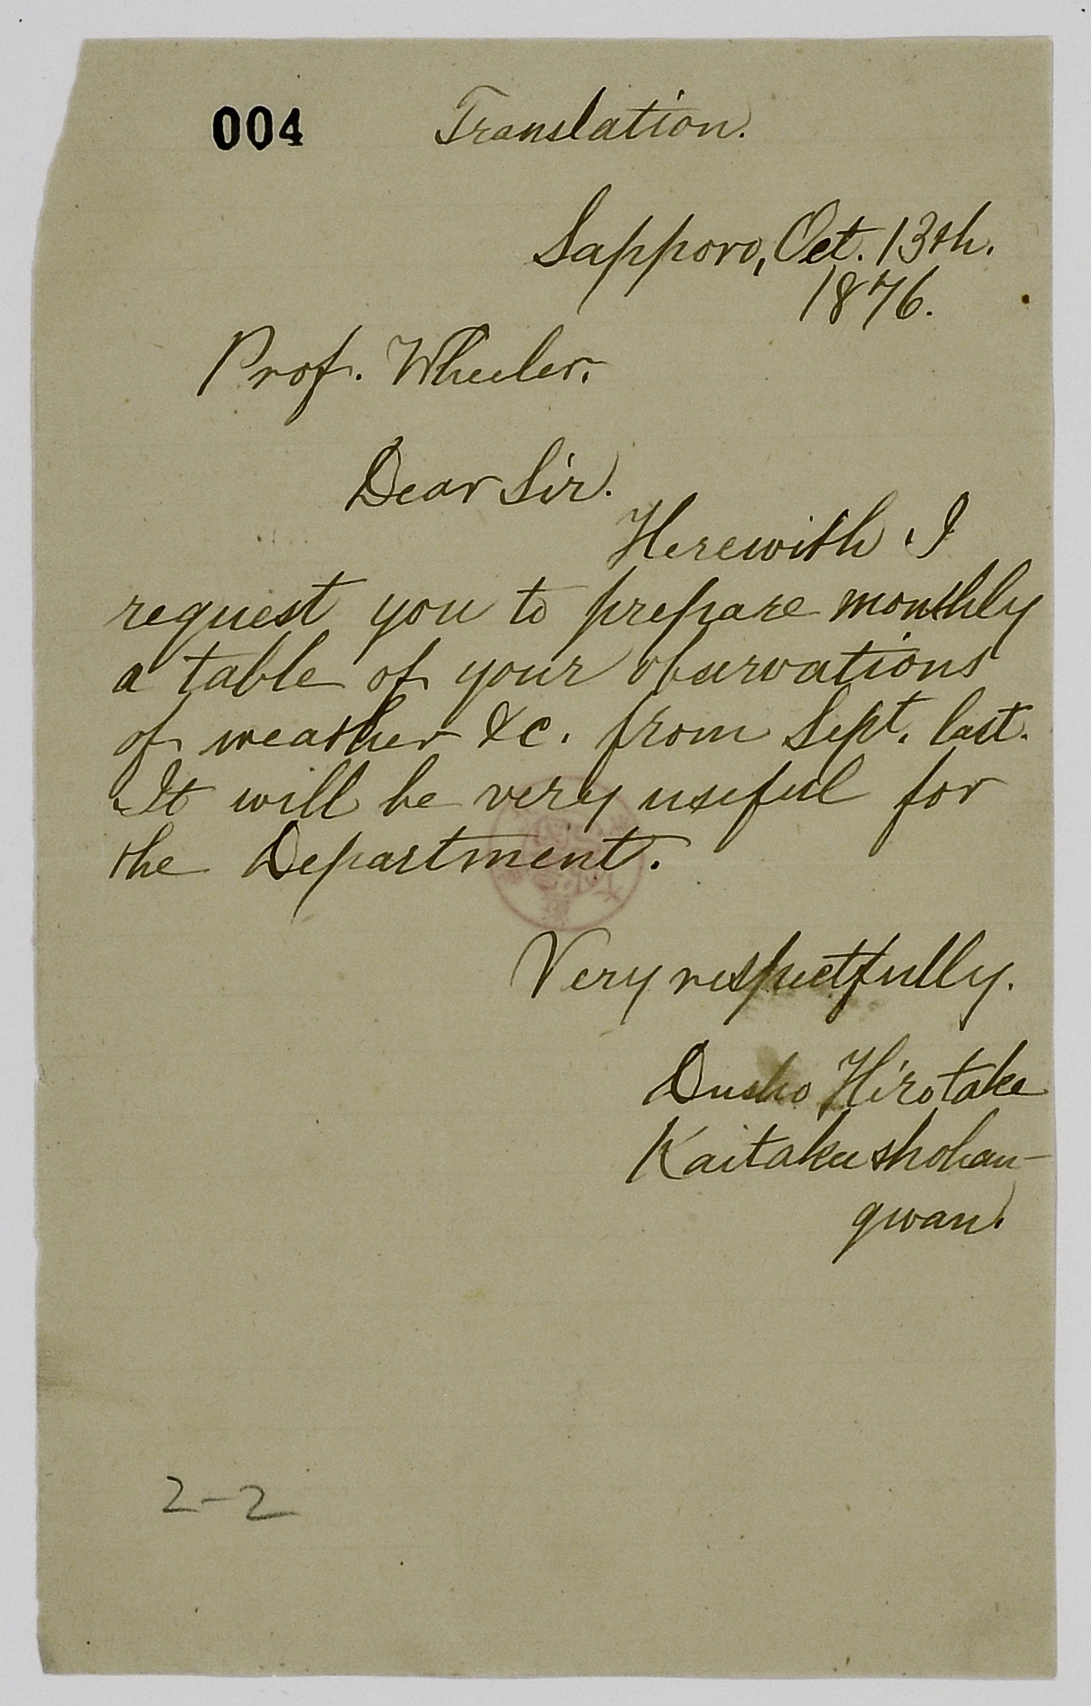 004 Translation.
Sapporo, Oct. 13th.
1876.
Prof. Wheeler.
Dear Sir.
Herewith I
request you to prepare monthly
a table of your observations
of weather &c. from Sept. last.
It will be very useful for
the Department.
Very respectfully.
Dusho Hirotake
Kaitakushohan-
gwan.
2-2